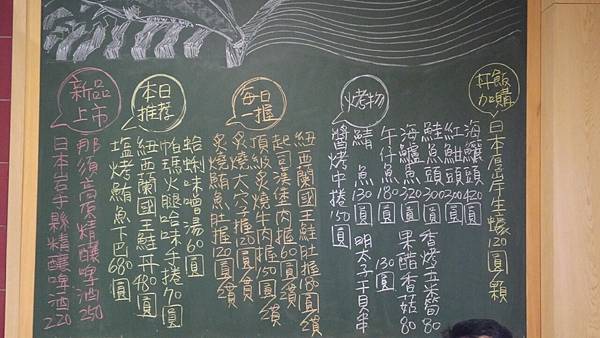 杯飯加購
日本厚岸生蠔120圓/顆
烤物
海鱺頭420圓
紅魽頭300圓
鮭魚頭300圓
海鱸魚320圓
午仔魚180圓
鯖魚130圓
醬烤中捲150圓
香烤五米筒80
果醋香菇80
明太子干貝串130圓
每日一推
紐西蘭國王鮭肚握180圓/貫
起司漢堡肉握60圓/貫
頂級炙燒牛肉握150圓/貫
炙燒大穴子握120圓/貫
炙燒鮪魚肚握120圓/貫
本日推荐
蛤蜊味噌湯60圓
帕瑪火腿哈味手捲70圓
紐西蘭國王鮭丼480圓
塩烤鮪魚下巴680圓
新品上市
那須高原精釀啤酒250
日本岩手縣精釀啤酒220